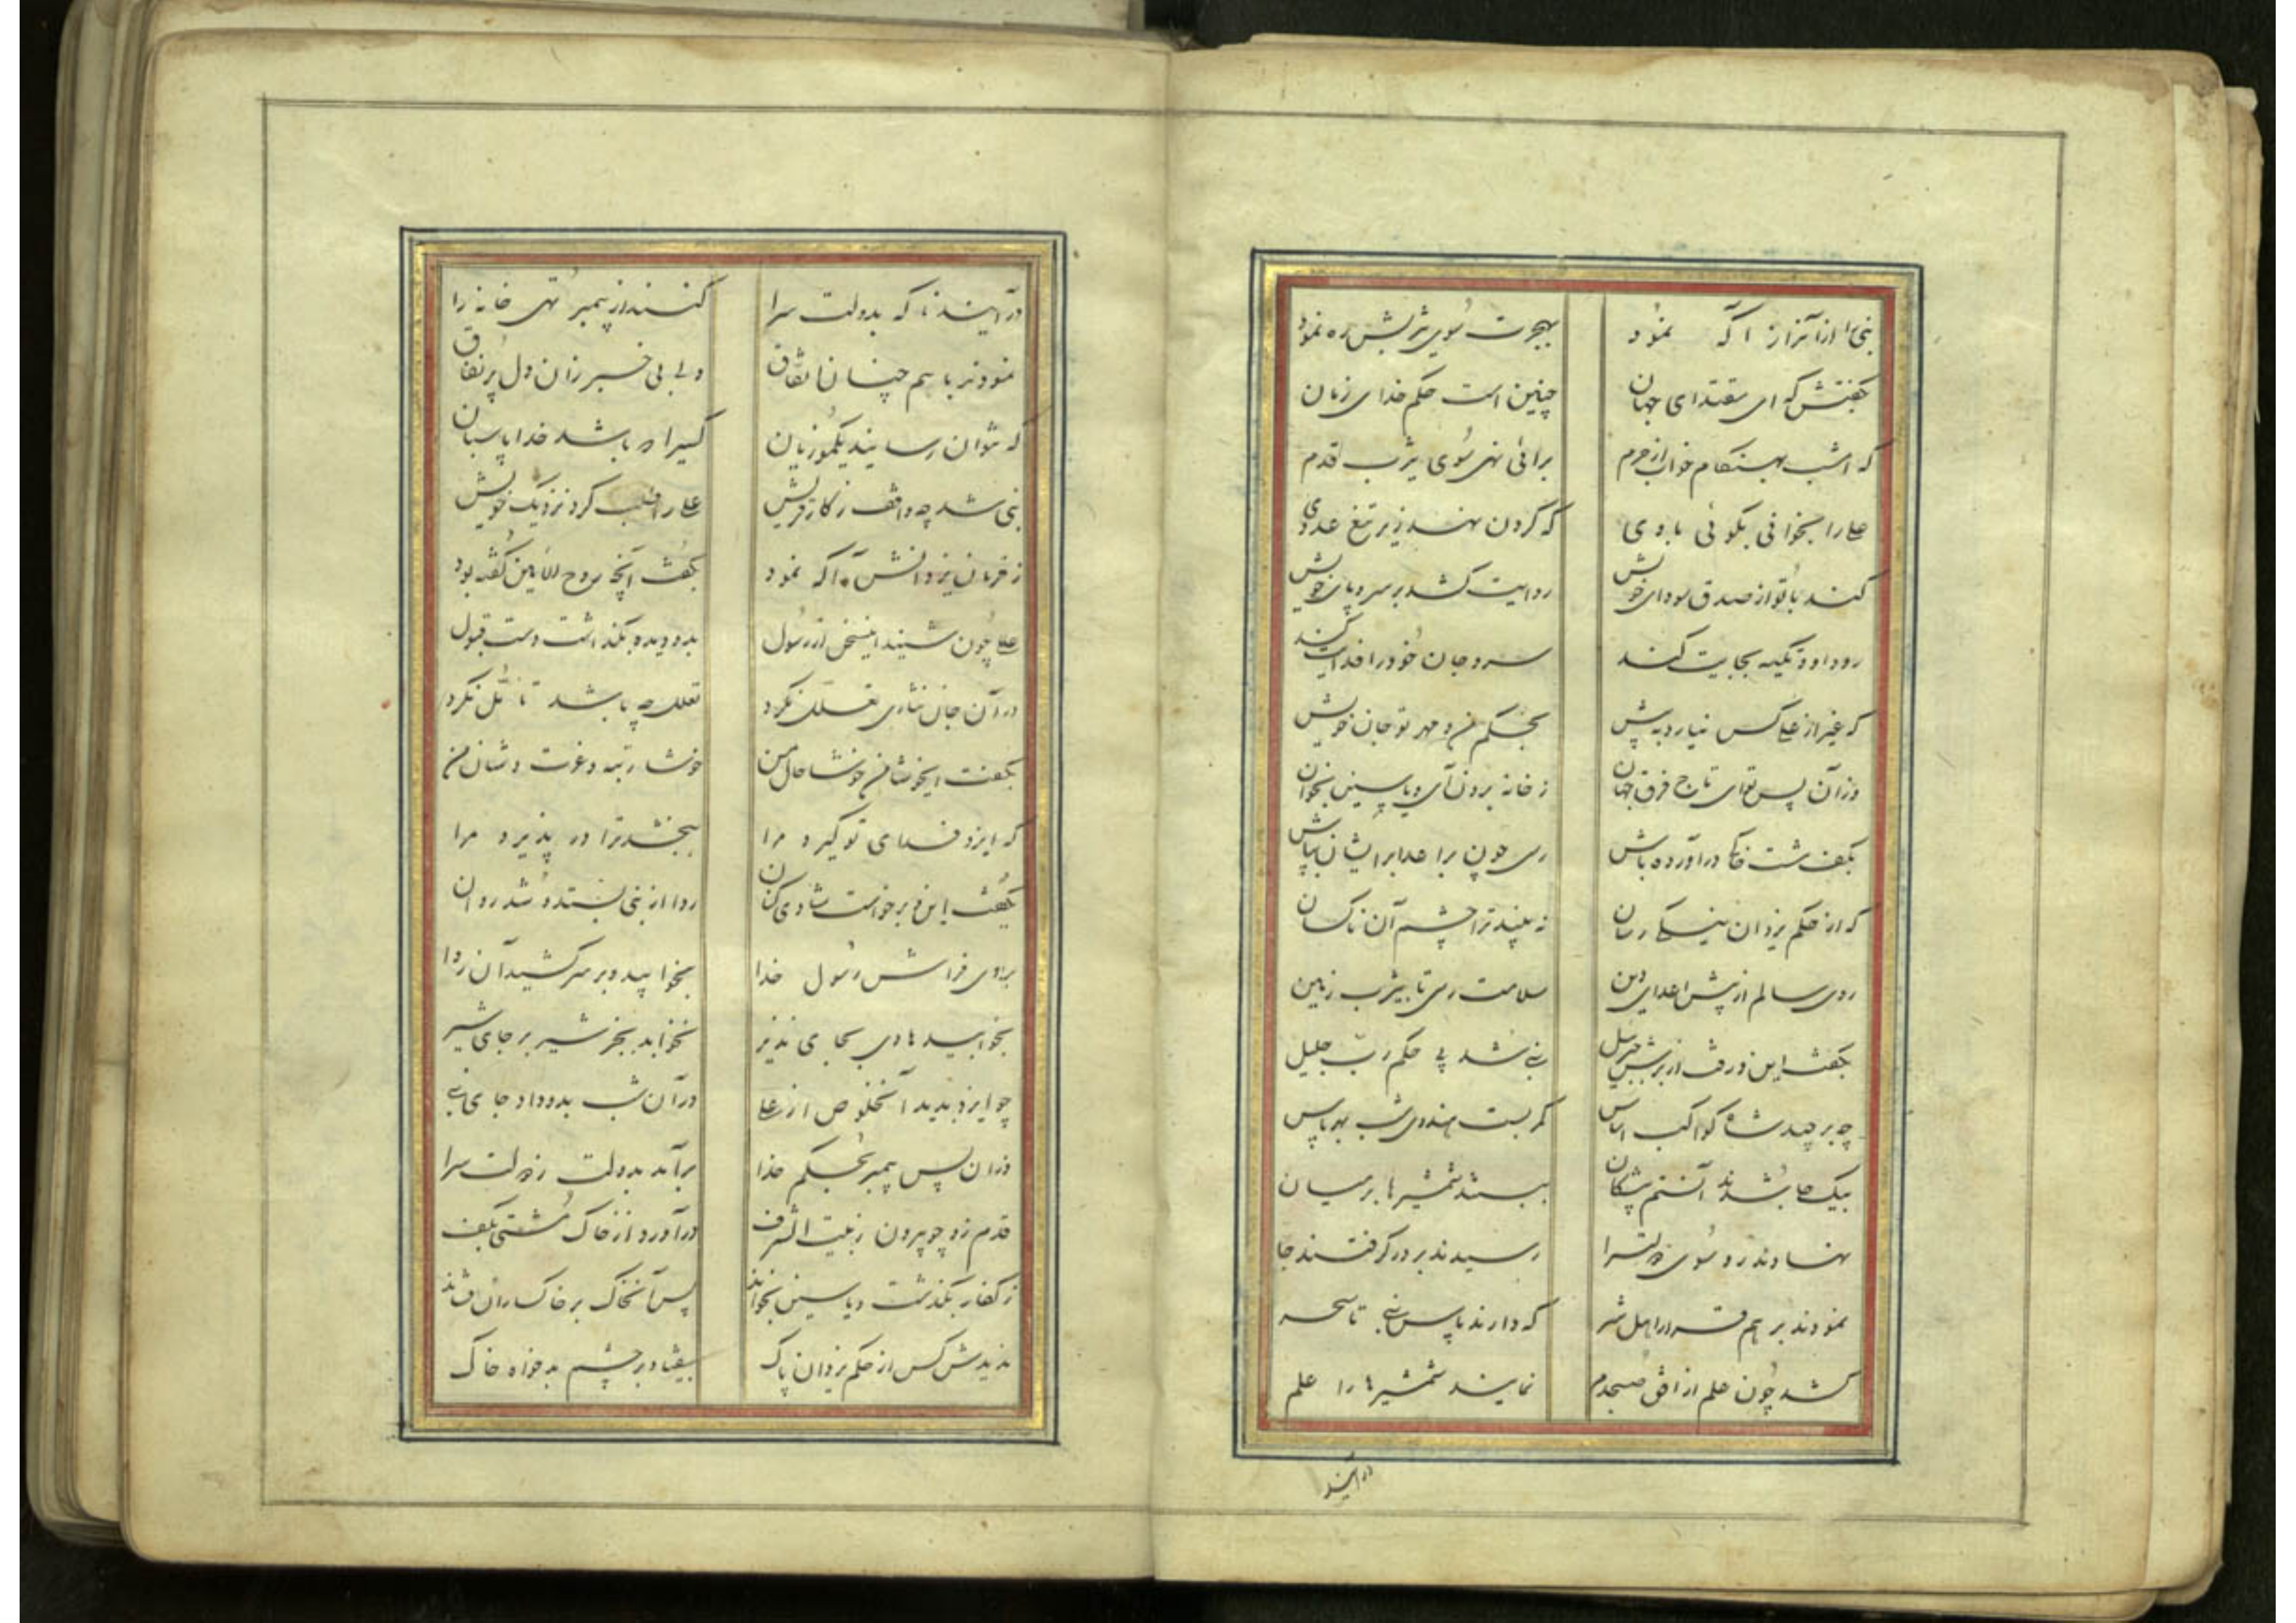 نبی را ازان راز آگه نمود بهجرت سوی یثربش ره نمود
بگفتش که ای مقتدای جهان چنین است حکم خدای زمان
که امشب بهنگام خواب از حرم برائی نهی سوی یثرب قدم
علی را بخوانی بگوئی باوی که گردن نهد زیر تیغ عدوی
کند با تو از صدق سودای خویش ردایت کشد بر سر و پای خویش
رود او و تکیه بجایت کند سر و جان خود را فدایت کند
که غیر از علی کس نیارد به پیش بحکم من و مهر تو جان خویش
وزآن پس تو ای تاج فرق جهان ز خانه برون آی و یاسین بخوان
بکف مشت خاکی درآورده باش رسی چون بر اعدا بر ایشان بپاش
که از حکم یزدان نیکی رسان نه بیند ترا چشم آن ناکسان
روی سالم از پیش اعدای دین سلامت رسی تا بیثرب زمین
بگفت این و رفت از برش جبرئیل نبی شد پی حکم رب جلیل
چه برچید شاه کواکب اساس کمر بست هندوی شب بهر پاس
بیک جا شدند آن ستم پیشگان ببستند شمشیرها بر میان
نهادند رو سوی دولتسرا رسیدند بر در گرفتند جا
نمودند بر هم قرار اهل شر که دارند پاس نبی تا سحر
کشد چون علم از افق صبحدم نمایند شمشیرها را علم
درآیند
درآیند ناگه بدولت سرا کنند از پیمبر تهی خانه را
نمودند با هم چنان اتفاق ولی بی خبر زان دل پر نفاق
که نتوان رسانید یکمو زیان کسیرا که باشد خدا پاسبان
نبی شد چه واقف ز کار قریش علی را طلب کرد نزدیک خویش
ز فرمان یزدانش آگه نمود بگفت آنچه روح الامین گفته بود
علی چون شنید اینسخن از رسول بدو دیده بگذاشت دست قبول
در آن جان نثاری تعلل نکرد تعلل چه باشد تامل نکرد
بگفت ایخوشا من خوشا حال من خوشا رتبه و عزت و شان من
که ایزد فدای تو گیرد مرا ببخشد ترا در پذیرد مرا
بگفت این و برخواست شادی کنان ردا از نبی بستد و شد روان
بروی فراش رسول خدا بخوابید و بر سر کشید آن ردا
بخوابید هادی بجای نذیر نخوابد بجز شیر بر جای شیر
چو ایزد بدید آنخلوص از علی در آن شب بدو داد جای نبی
وزان پس پیمبر بحکم خدا برآمد بدولت ز دولت سرا
قدم زد چو بیرون ز بیت الشرف درآورد از خاک مشتی بکف
ز کفار بگذشت و یاسین بخواند پس آنخاک بر خاکساران فشاند
ندیدش کس از حکم یزدان پاک بیفتاد بر چشم بدخواه خاک